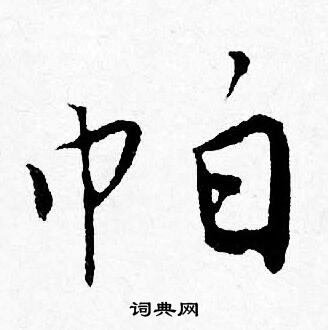 帕
词典网